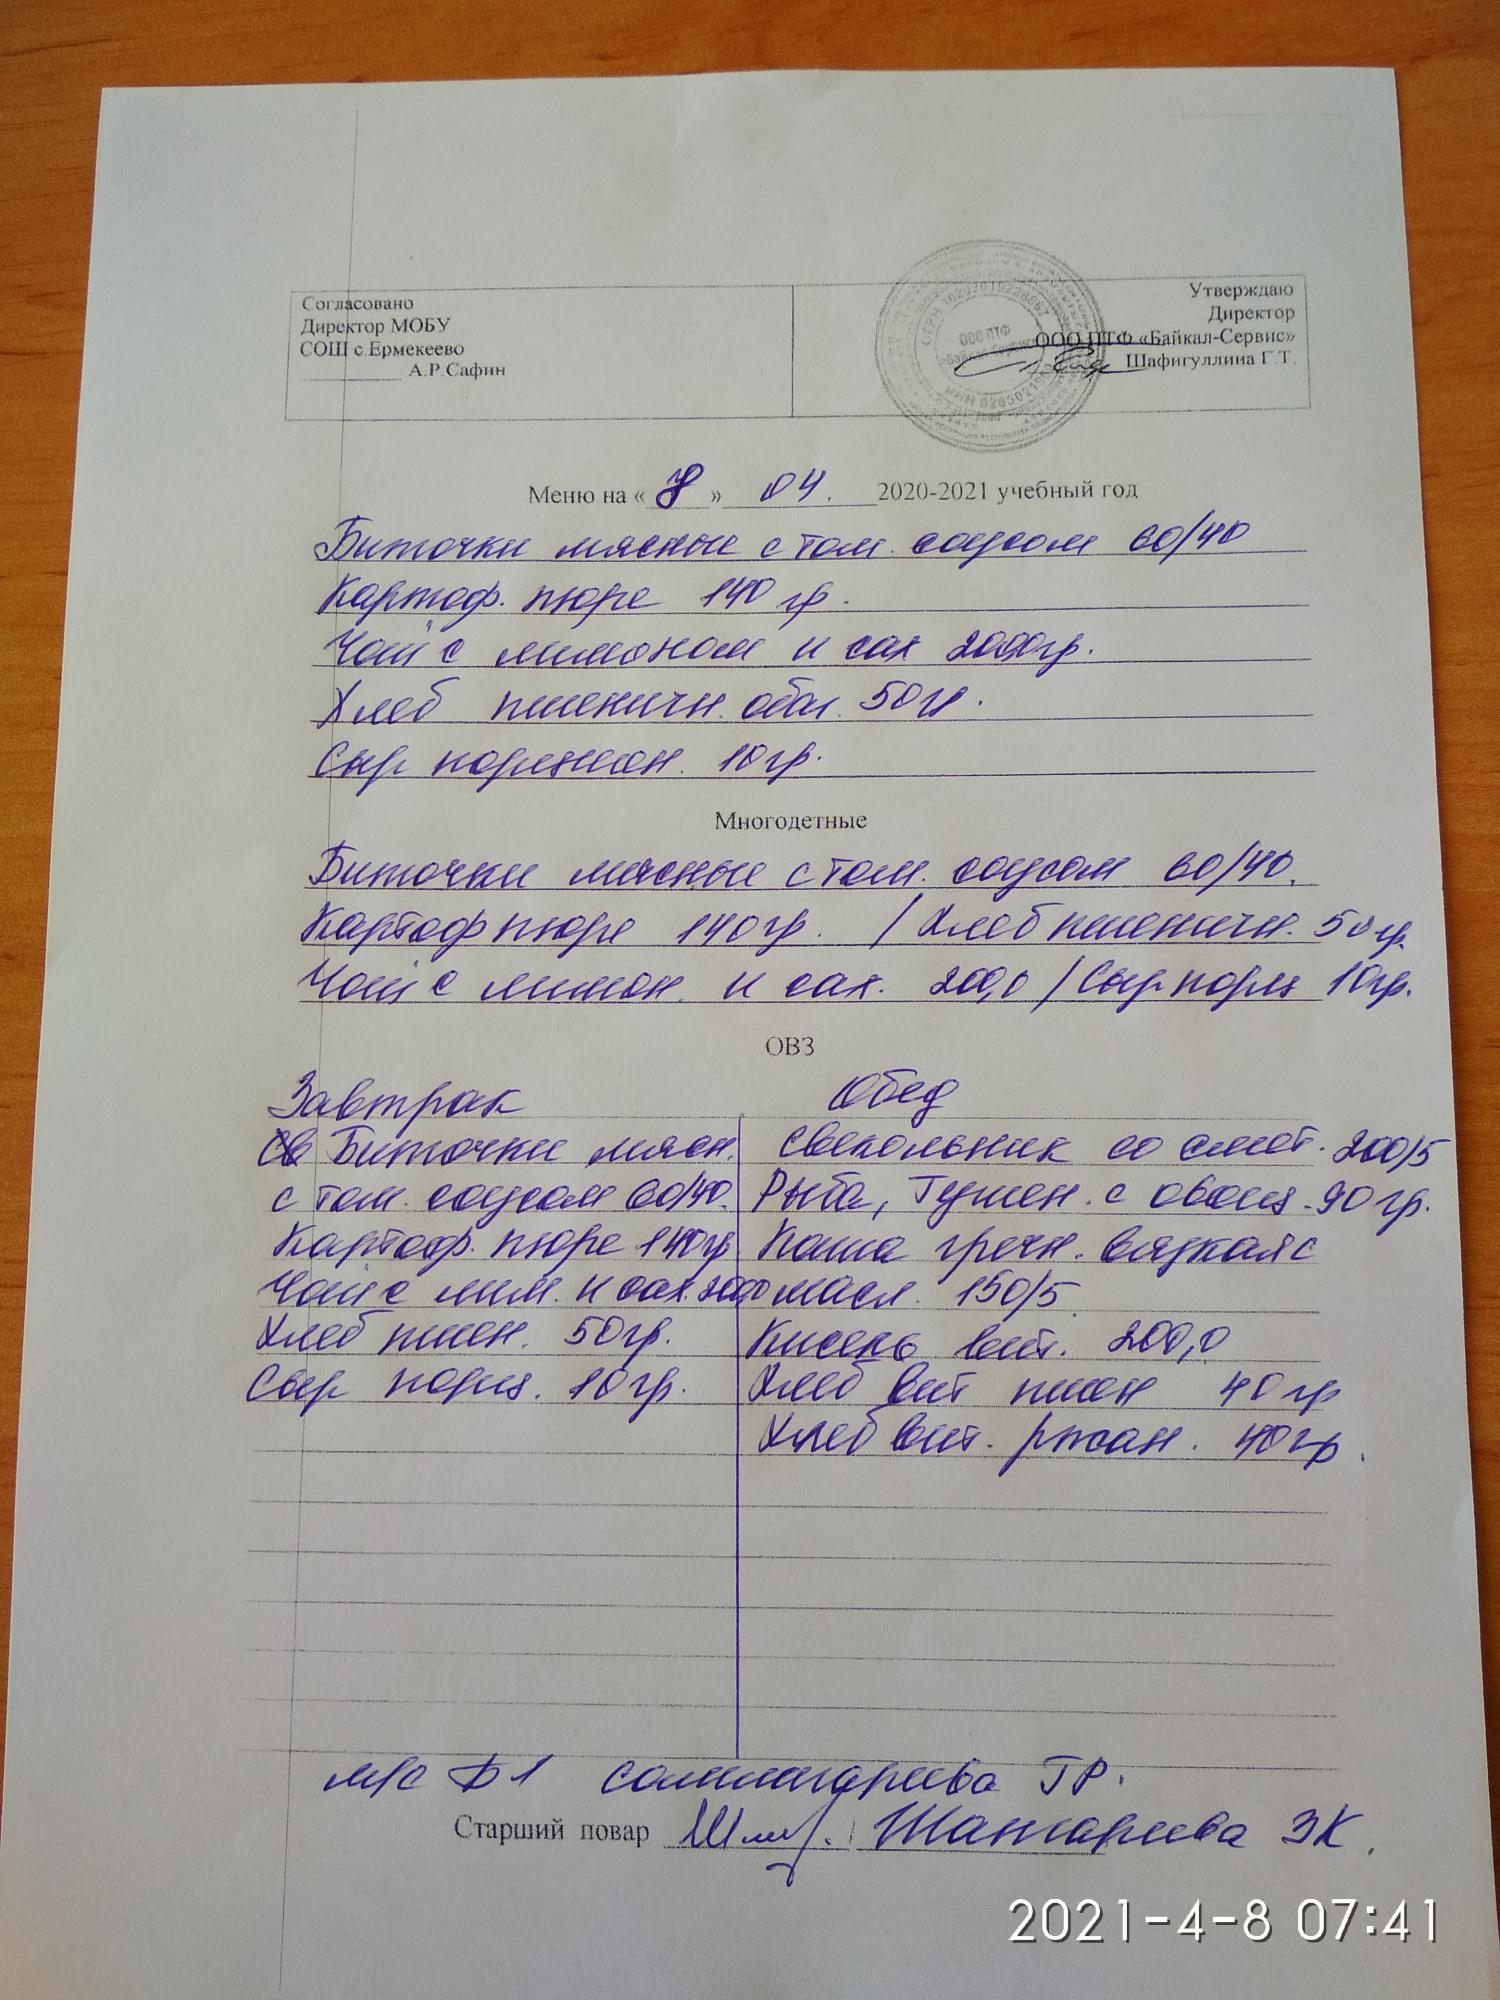 Согласовано
Директор МОБУ
СОШ с.Ермекеево
А.Р.Сафин
Утверждаю
Директор
ООО ПТФ «Байкал-Сервис»
Шафигуллина Г.Т.
ООО ПТФ
Меню на « 8 » 04. 2020-2021 учебный год
Биточки мясные с том. соусом 60/40
Картоф. пюре 140 гр.
Чай с лимоном и сах 200,0гр.
Хлеб пшеничн. обог. 50гр.
Сыр порцион. 10гр.
Многодетные
Биточки мясные с том. соусом 60/40.
Картоф пюре 140гр. / Хлеб пшеничн. 50гр.
Чай с лимон. и сах. 200,0 / Сыр порц 10гр.
ОВЗ
Завтрак
Биточки мясн.
с том. соусом 60/40.
Картоф. пюре 140гр
Чай с лим. и сах. 200,0
Хлеб пшен. 50гр.
Сыр порц. 10гр.
Обед
Свекольник со смет. 200/5
Рыба, Тушен. с овощ. 90гр.
Каша гречн. вязкая с
масл. 150/5
Кисель вит. 200,0
Хлеб вит пшен 40гр
Хлеб вит. ржан. 40гр.
м/с ГР.
Старший повар ЗК.
2021-4-8 07:41